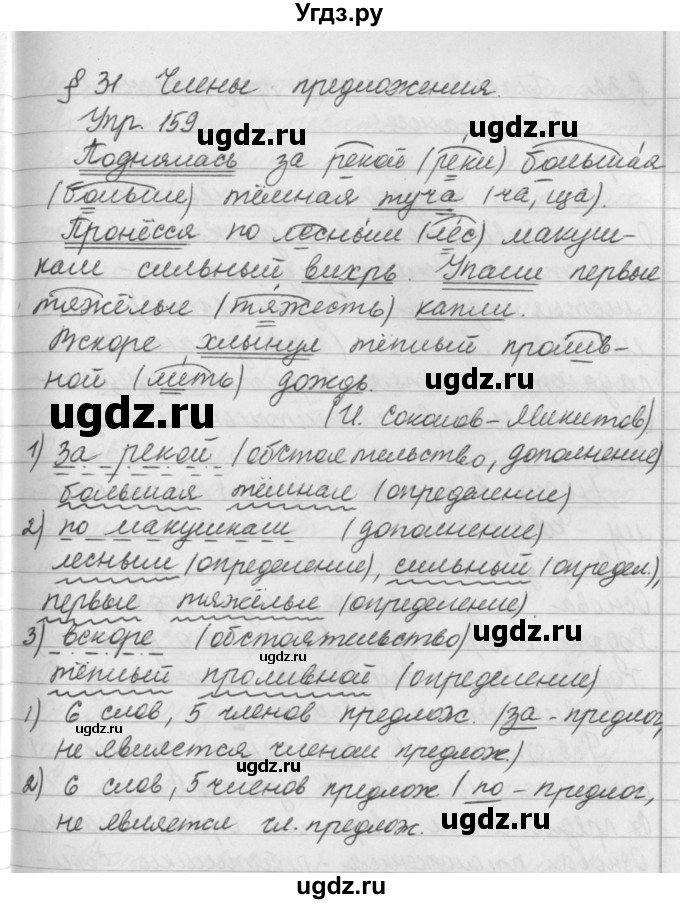 Угдз.ру
§ 31 Члены предложения.
Упр. 159
Поднялась за рекой (ре́ки) больша́я
(больше) тёмная туча (ча, ща).
Пронёсся по лесным (лес) макуш-
кам сильный вихрь. Упали первые
тяжёлые (тя́жесть) капли.
Вскоре хлынул тёплый пролив-
ной (ли́ть) дождь.
(И. Соколов-Микитов)
1) За рекой (обстоятельство, дополнение)
большая тёмная (определение)
2) по макушкам (дополнение)
лесным (определение), сильный (определ.),
первые тяжёлые (определение).
3) вскоре (обстоятельство)
тёплый проливной (определение)
1) 6 слов, 5 членов предлож. (за - предлог,
не является членом предлож.)
2) 6 слов, 5 членов предлож. (по - предлог,
не является чл. предлож.
ugdz.ru
ugdz.ru
ugdz.ru
ugdz.ru
ugdz.ru
ugdz.ru
ugdz.ru
ugdz.ru
ugdz.ru
ugdz.ru